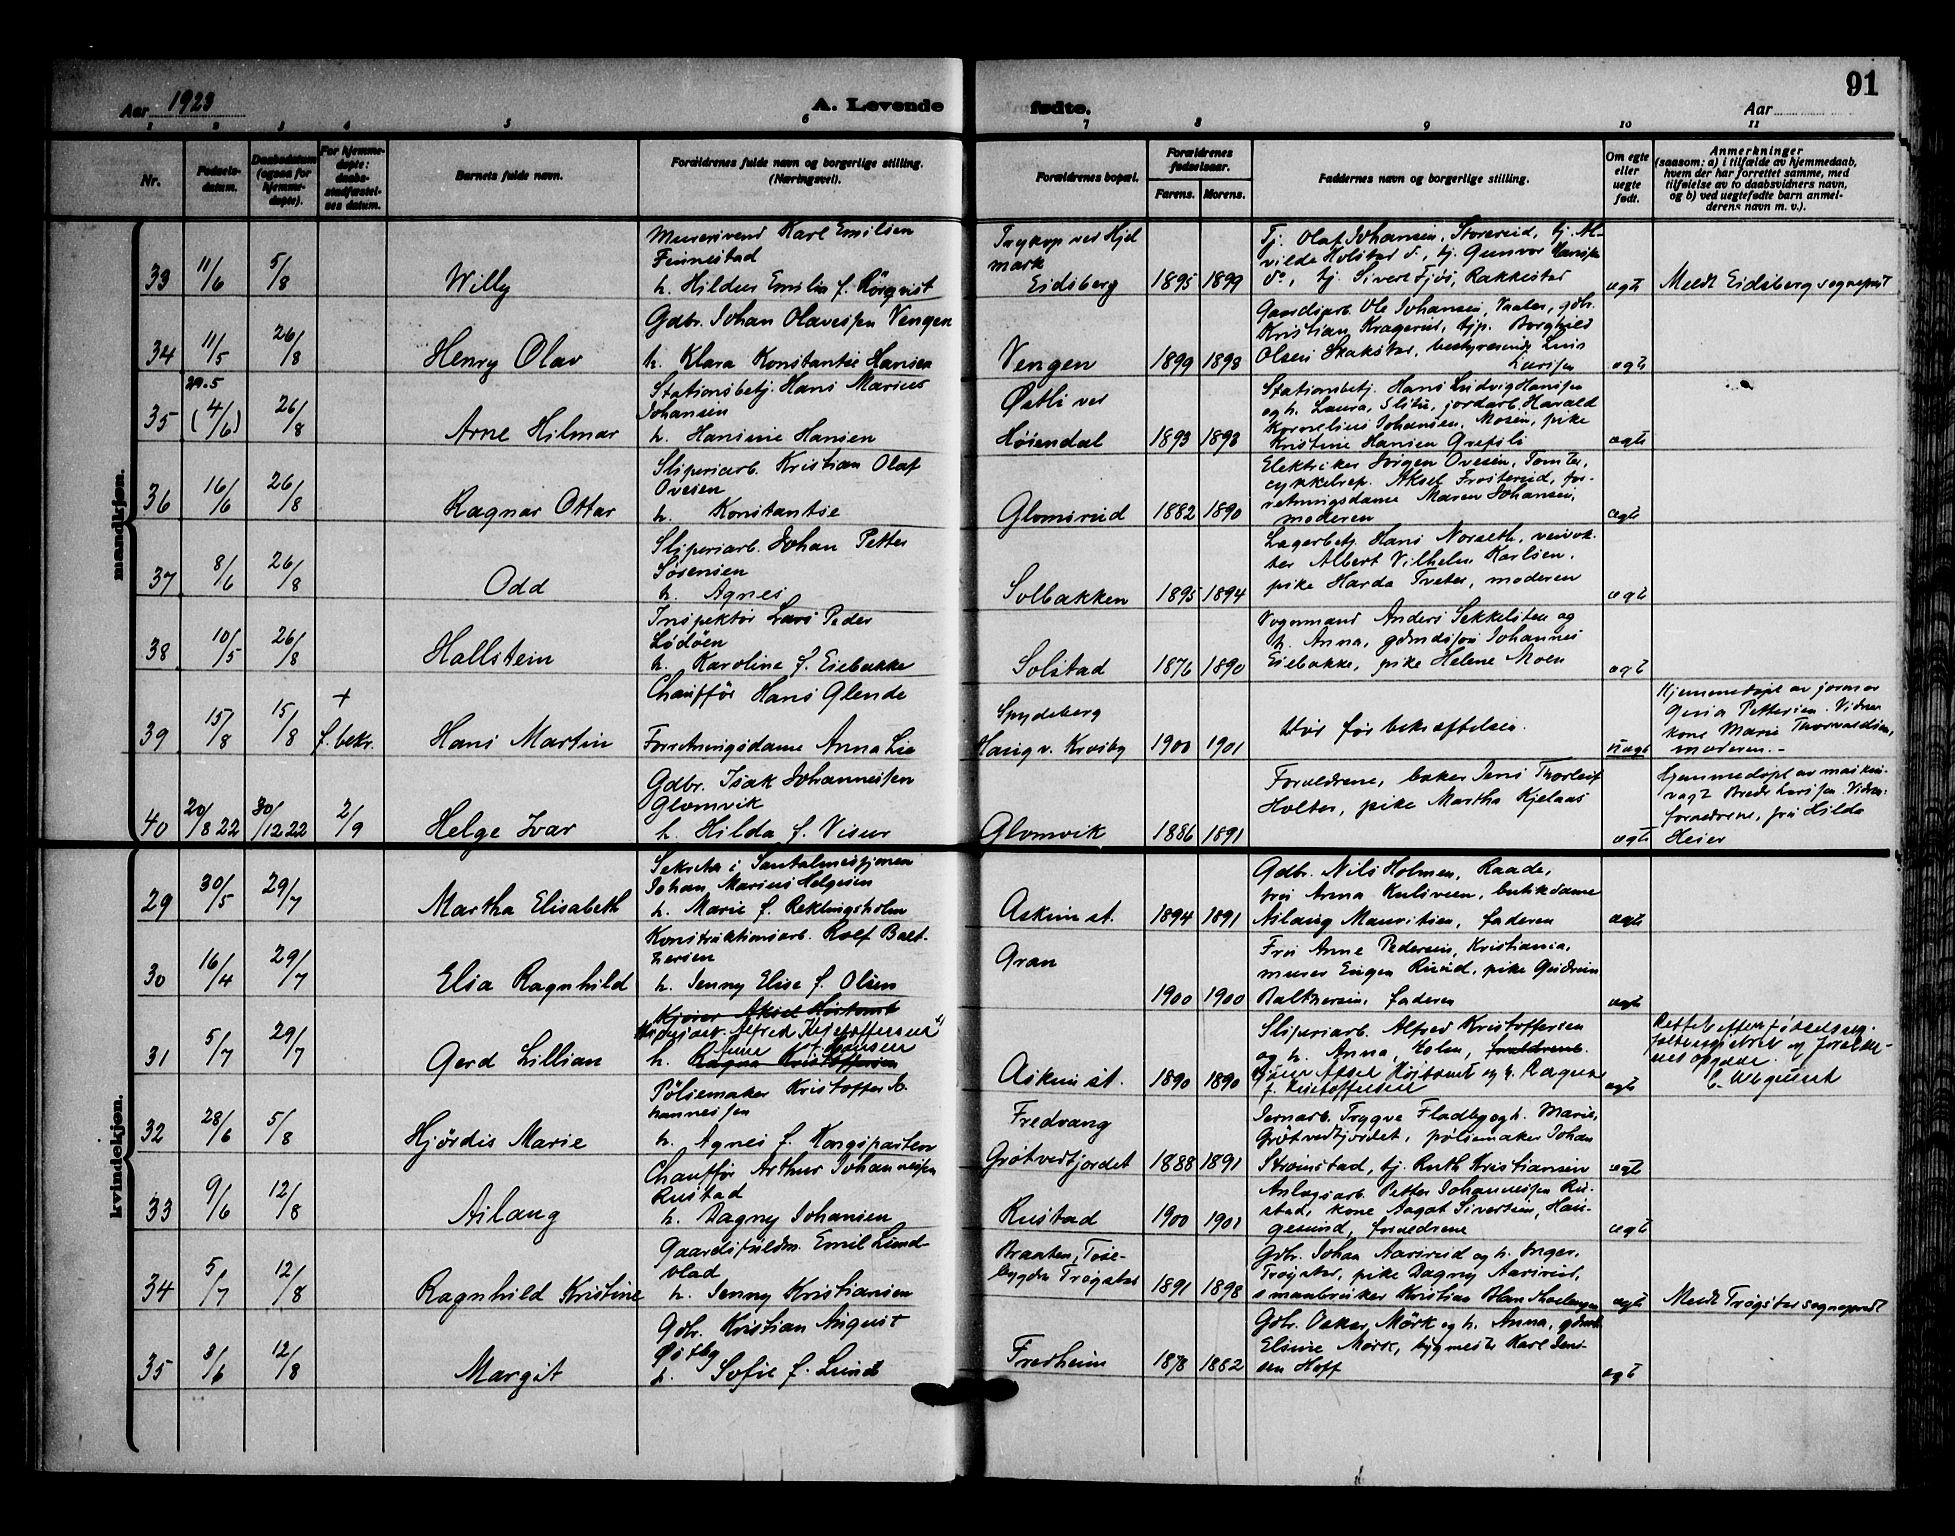 91
Aar 1923
A. Levende
fødte.
Aar
1 2 3 4 5 6 7 8 9 10 11
Nr.
Fødselsdatum.
Daabsdatum (ogsaa for hjemmedøpte).
For hjemmedøpte: daabsstadfæstelses datum.
Barnets fulde navn.
Forældrenes fulde navn og borgerlige stilling. (Næringsvei).
Forældrenes bopæl.
Forældrenes fødselsaar.
Farens. Morens.
Faddernes navn og borgerlige stilling.
Om egte eller uegte født.
Anmerkninger
(saasom: a) i tilfælde av hjemmedaab,
hvem der har forrettet samme, med
tilføielse av to daabsvidners navn,
og b) ved uegtefødte barn anmelderens navn m. v.).
mandkjøn.
33 11/6 5/8 Willy
Karl Emilsen
Finnestad
h. Hildur Emilia f. Rörqvist
Eidsberg 1895 1899
Tj. Olaf Johansen,
tj. Gunvor Hansen
do, tj. Sivert Fjös, Rakkestad
egte
Meldt Eidsberg sogneprest
34 11/5 26/8 Henry Olav
Gdbr. Johan Olavessen Vengen
h. Klara Konstantie Hansen
Vengen 1899 1898
Gaardsarb. Ole Johansen, Vaaler, gdbr.
Kristian Kragerud, tjp. Borghild
Olsen Skakstad, bestyrerinde
egte
35 29.5 (4/6) 26/8 Arne Hilmar
Stationsbetj. Hans Marius
Johansen
h. Hansine Hansen
Østli ved
Høiendal 1893 1898
Stationsbetj. Hans Ludvig Hansen
og h. Laura, Slitu, jordarb. Harald
Kornelius Johansen, Mosen, pike
Kristine Hansen Grefsli
egte
36 16/6 26/8 Ragnar Ottar
Sliperiarb. Kristian Olaf
Ovesen
h. Konstantie
Glomsrud 1882 1890
Elektriker Jörgen Ovesen, Tomter,
cykkelrep. Aksel Frösterud, forretningsdame
Maren Johansen,
moderen
egte
37 8/6 26/8 Odd
Sliperiarb. Johan Petter
Sörensen
h. Agnes
Solbakken 1895 1894
Lagerbetj. Hans Norseth,
Albert Vilhelm Karlsen,
pike Harda Tveter, moderen
egte
38 10/5 26/8 Hallstein
Inspektör Lars Peder
Lödöen
h. Karoline f. Eiebakke
Solstad 1876 1890
Vognmand Anders Sekkelsten og
h. Anna, gdmdssön Johannes
Eiebakke, pike Helene Moen
egte
39 15/8 15/8 + f. bekr. Hans Martin
Chauffør Hans Glende
Forretningsdame Anna Lie
Spydeberg
Haug v. Krosby 1900 1901
Död før bekræftelsen.
uegte
Hjemmedøpt av jormor
Pettersen. Vidner
kone Marie Thorvaldsen,
moderen. -
40 20/8 22 30/12 22 2/9 Helge Ivar
Gdbr. Isak Johannessen
Glomvik
h. Hilda f. Visur
Glomvik 1886 1891
Forældrene, baker Jens Thorleif
Holter, pike Martha Kjelaas
egte
hjemmedøpt av
Larssen. Vidner:
forældrene, fru Hilda
Heier
kvindekjøn.
29 30/5 29/7 Martha Elisabeth
Sekretær i Santalmissjonen
Johan Marius Helgesen
h. Marie f. Reklingsholm
Askim st. 1894 1891
Gdbr. Nils Holmen, Raade,
fru Anna Kulsveen, butikdame
Aslaug Mauritsen, faderen
egte
30 16/4 29/7 Elsa Ragnhild
Konstruktionsarb. Rolf Baltzersen
h. Jenny Elise f. Olsen
Gran 1900 1900
Fru Anne Pedersen, Kristiania,
murer Eugen Ruud, pike Gudrun
Baltzersen, faderen
egte
31 5/7 29/7 Gerd Lillian
Kjører Aksel Høitomt
Alfred Kristoffersen
h. Ragna Kristoffersen
Askim st. 1890 1890
Sliperiarb. Alfred Kristoffersen
og h. Anna, Holm, forældrene.
Kjører Aksel Høitomt og h. Ragna
f. Kristoffersen
egte
32 28/6 5/8 Hjördis Marie
Pölsemaker Kristoffer Johannessen
h. Agnes f. Kongsparten
Fredvang
Grötvedtjordet 1888 1891
Jernarb. Trygve Fladby og h. Marie,
Grötvedtjordet, pölsemaker Johan
Strömstad, tj. Ruth Kristiansen
egte
33 9/6 12/8 Aslaug
Chauffør Arthur Johannessen
Rustad
h. Dagny Johansen
Rustad 1900 1901
Anlægsarb. Petter Johannessen Rustad,
kone Aagot Sivertsen, Haugesund,
forældrene
egte
34 5/7 12/8 Ragnhild Kristine
Gaardsfuldm. Emil
h. Jenny Kristiansen
Braaten,
Trögstad 1891 1898
Gdbr. Johan Aasrud og h. Inger,
Trögstad, pike Dagny Aasrud,
smaabruker Kristian
egte
Meldt Trögstad sogneprest
35 3/6 12/8 Margit
Gdbr. Kristian August
Østby
h. Sofie f. Lund
Fredheim 1878 1882
Gdbr. Oskar Mörk og h. Anna,
Elsine Mörk, bygmester Karl Jensen
Hoff
egte